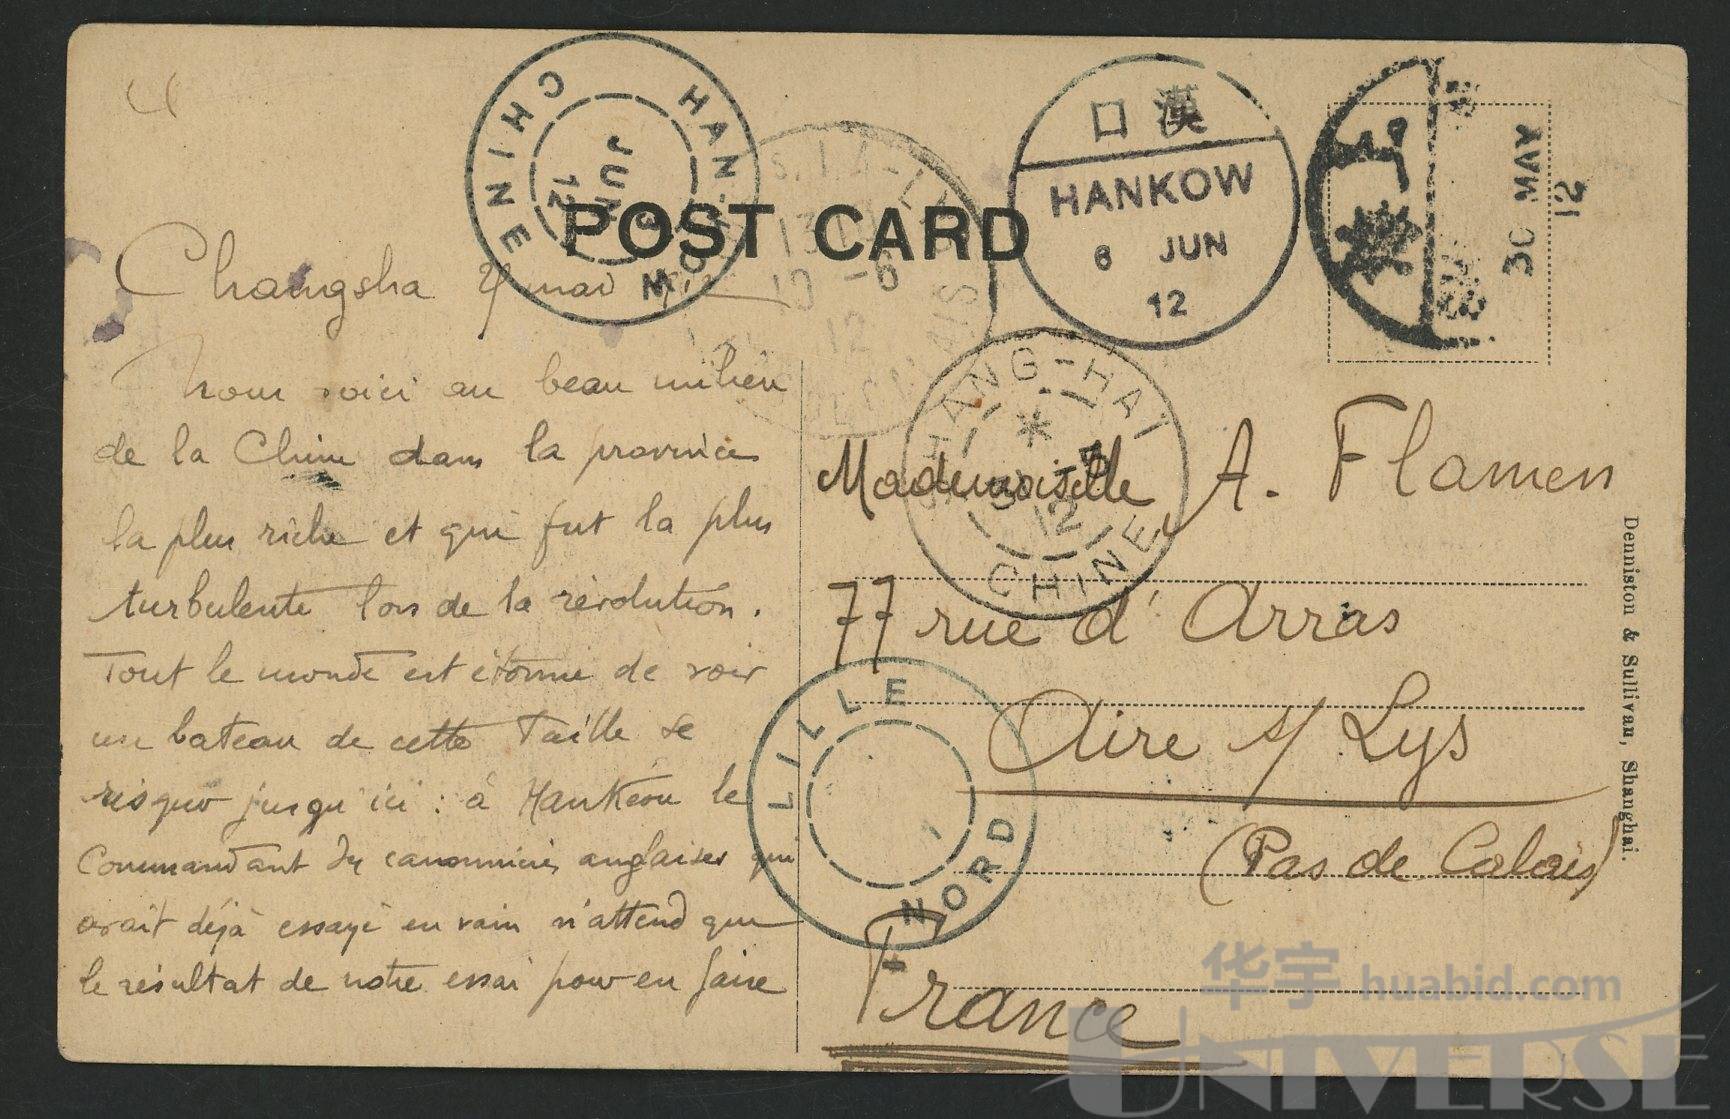 HAN-KOW
CHINE
JUN
12
POST CARD
漢口
HANKOW
6 JUN
12
30 MAY
12
SHANG-HAI
CHINE
12
LILLE
NORD
Changsha mai
Nous voici au beau milieu
de la Chine dans la province
la plus riche et qui fut la plus
turbulente lors de la révolution.
Tout le monde est étonné de voir
un bateau de cette taille se
risquer jusqu'ici : à Hankéou le
Commandant des canonnières anglaises qui
avait déjà essayé en vain n'attend que
le résultat de notre essai pour en faire
Mademoiselle A. Flamen
77 rue d'Arras
Aire s/ Lys
(Pas de Calais)
France
Denniston & Sullivan, Shanghai.
华宇 huabid.com
UNIVERSE